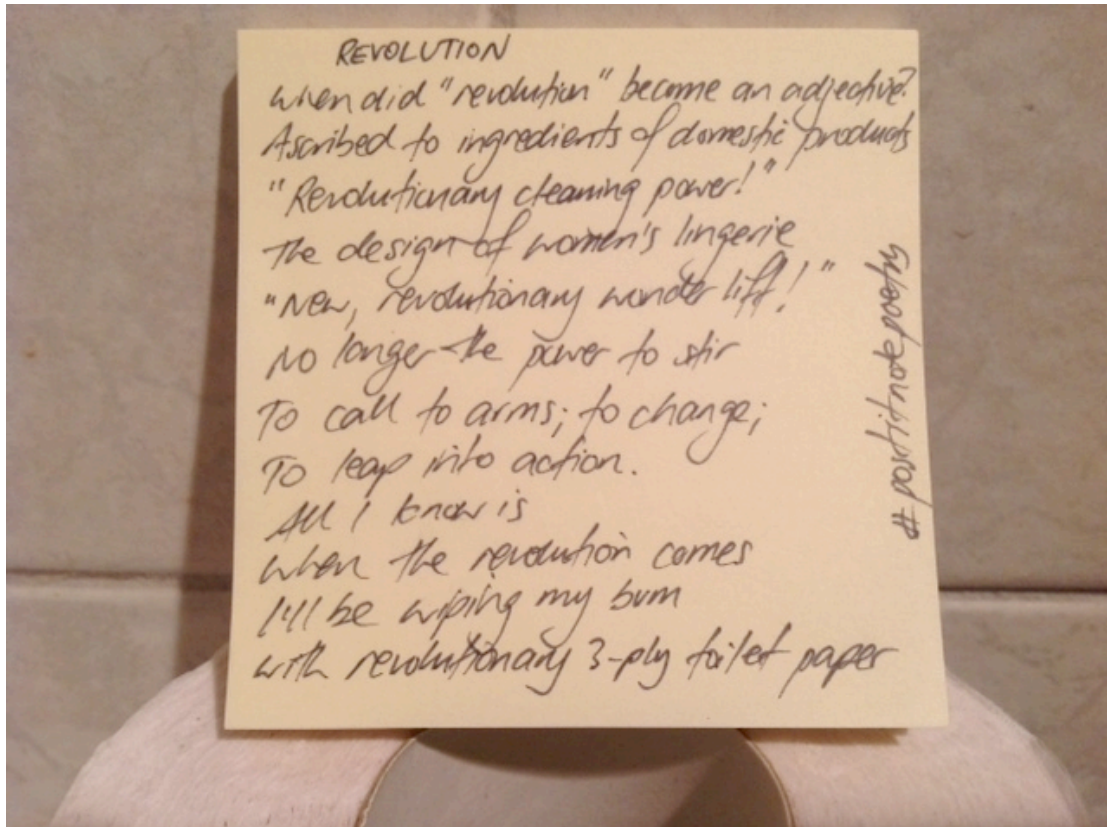 REVOLUTION
When did "revolution" become an adjective?
Ascribed to ingredients of domestic products
"Revolutionary cleaning power!"
The design of women's lingerie
"New, revolutionary wonder lift!"
No longer the power to stir
To call to arms; to change;
To leap into action.
All I know is
When the revolution comes
I'll be wiping my bum
with revolutionary 3-ply toilet paper
#postitnotepoetry